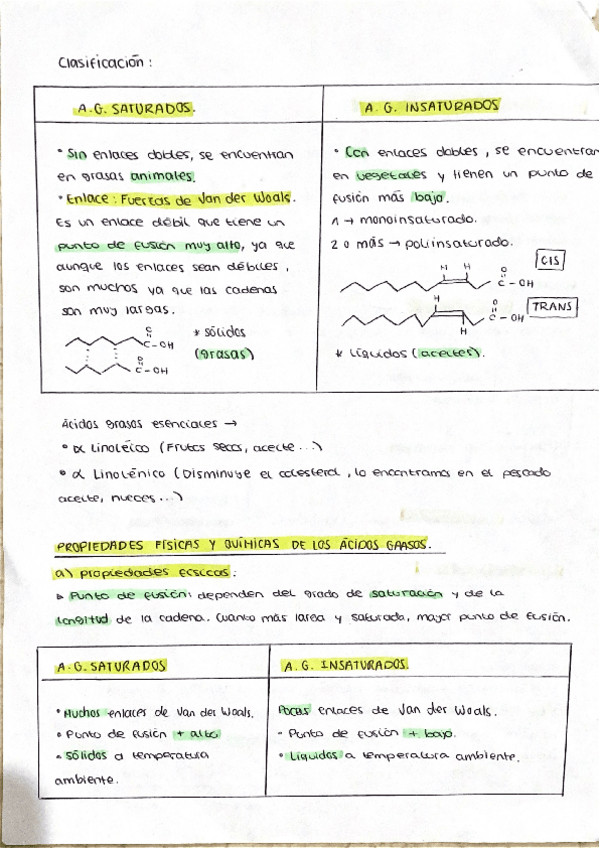 Clasificación:
A.G. SATURADOS.
• Sin enlaces dobles, se encuentran
en grasas animales.
• Enlace: Fuerzas de Van der Waals.
Es un enlace débil que tiene un
punto de fusión muy alto, ya que
aunque los enlaces sean débiles,
son muchos ya que las cadenas
son muy largas.
O
C-OH
O
C-OH
* sólidos
(grasas)
A. G. INSATURADOS
• Con enlaces dobles, se encuentran
en vegetales y tienen un punto de
fusión más bajo.
1 → monoinsaturado.
2 o más → poliinsaturado.
CIS
H H O
C-OH
TRANS
H O
C-OH
H
* Líquidos (aceites).
Ácidos grasos esenciales →
• α Linoléico (Frutos secos, aceite...)
• α Linolénico (Disminuye el colesterol, lo encontramos en el pescado
aceite, nueces...)
PROPIEDADES FÍSICAS Y QUÍMICAS DE LOS ÁCIDOS GRASOS.
a) Propiedades físicas:
▹ Punto de fusión: dependen del grado de saturación y de la
longitud de la cadena. Cuanto más larga y saturada, mayor punto de fusión.
A.G. SATURADOS
• Muchos enlaces de Van der Waals.
• Punto de fusión + alto
• Sólidos a temperatura
ambiente.
A.G. INSATURADOS.
Pocas enlaces de Van der Waals.
- Punto de fusión + bajo.
• Líquidos a temperatura ambiente.